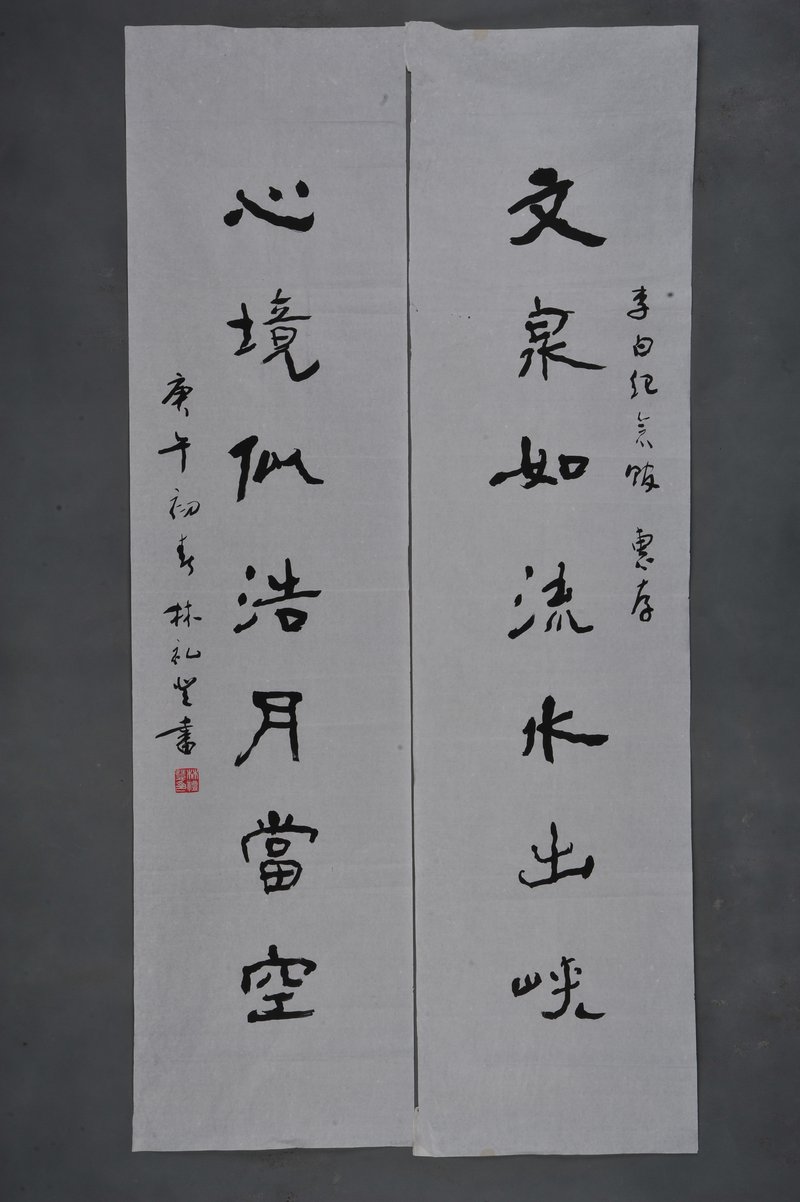 李白纪念馆 惠存
文泉如流水出峡
心境似浩月當空
庚午初春 林礼 書